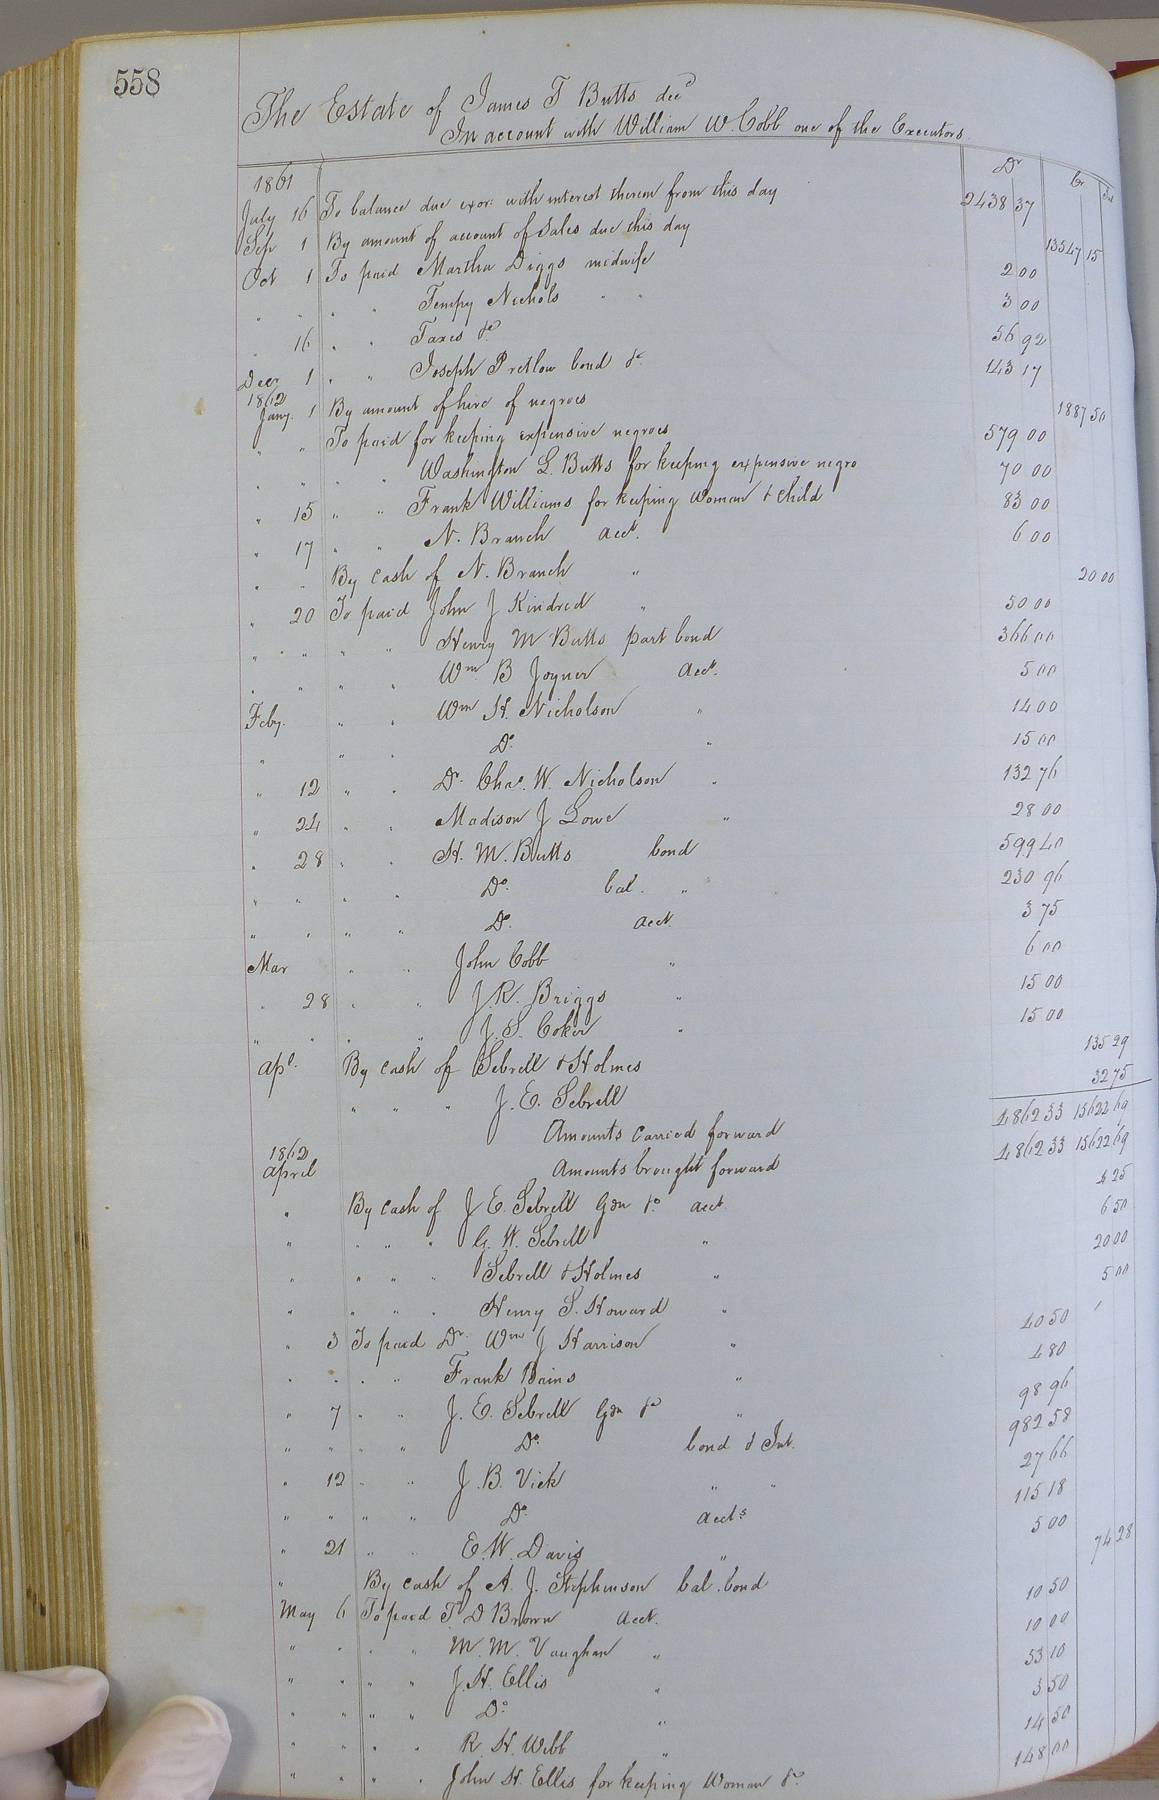 558
The Estate of James T Butts decd
In account with William W. Cobb one of the Executors
Dr Cr
1861
July 16 To balance due exor: with interest thereon from this day 2438 37
Sep 1 By amount of account of Sales due this day 13547 15
Oct 1 To paid Martha Diggs midwife 2 00
" " " " Tempy Nichols " " 3 00
" 16 " " Taxes &c 56 92
Decr 1 " " Joseph Pretlow bond &c 143 17
1862
Jany. 1 By amount of hire of negroes 1887 50
" " To paid for keeping expensive negroes 579 00
" " " Washington L. Butts for keeping expensive negro 70 00
" 15 " " Frank Williams for keeping Woman & Child 83 00
" 17 " " N. Branch acct. 6 00
" " By cash of N. Branch " 20 00
" 20 To paid John J Kindred " 50 00
" " " " Henry M Butts part bond 366 00
" " " " Wm B Joyner acct. 5 00
Feby. " " Wm H. Nicholson " 14 00
" " " Do. " 15 00
" 12 " " Dr. Chas. W. Nicholson " 132 76
" 24 " " Madison J Lowe " 28 00
" 28 " " H. M. Butts bond 599 40
" " " " Do. bal. " 230 96
" " " " Do. acct. 3 75
Mar " " John Cobb " 6 00
" 28 " " J. R. Briggs " 15 00
" " " J. S. Coker " 15 00
Apl. By cash of Sebrell & Holmes 135 29
" " " J. E. Sebrell 32 75
Amounts carried forward 4862 33 15622 69
1862
April Amounts brought forward 4862 33 15622 69
" By cash of J E. Sebrell Gdn &c acct. 4 25
" " " " G. W. Sebrell " 6 50
" " " " Sebrell & Holmes " 20 00
" " " " Henry S. Howard " 5 00
" 3 To paid Dr. Wm J Harrison " 40 50
" " " " Frank Bains " 4 80
" 7 " " J. E. Sebrell Gdn &c " 98 96
" " " " Do. bond & Int. 982 58
" 12 " " J. B. Vick " " 27 66
" " " " Do. accts 115 18
" 21 " " E. W. Davis " 5 00
" By cash of A. J. Stephenson bal. bond 74 28
May 6 To paid T D Brown acct. 10 50
" " " " M. M. Vaughan " 10 00
" " " " J. H. Ellis " 53 10
" " " " Do. " 3 50
" " " " R. H. Webb " 14 50
" " " " John H. Ellis for keeping Woman &c. 148 00